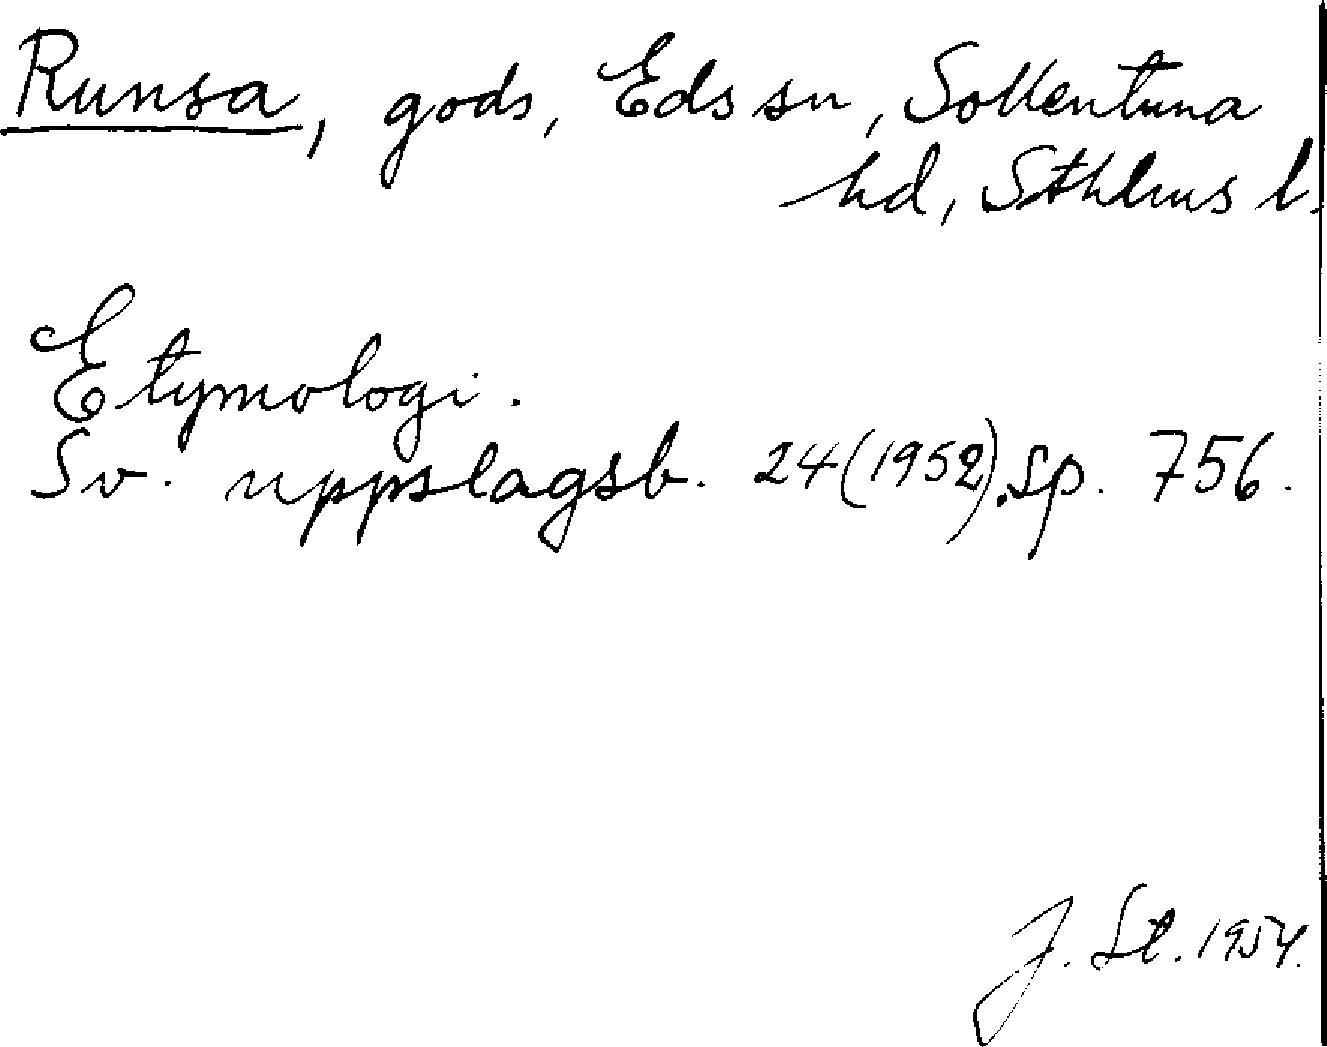 Runsa, gods, Eds sn, Sollentuna
hd, Sthlms l.
Etymologi.
Sv. uppslagsb. 24 (1952), sp. 756.
J. St. 1954.